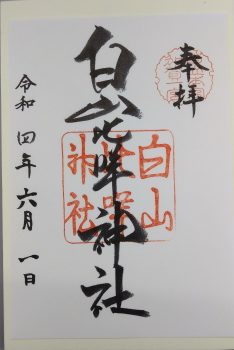 奉拝
白山比咩神社
白山
比咩
神社
令和四年六月一日